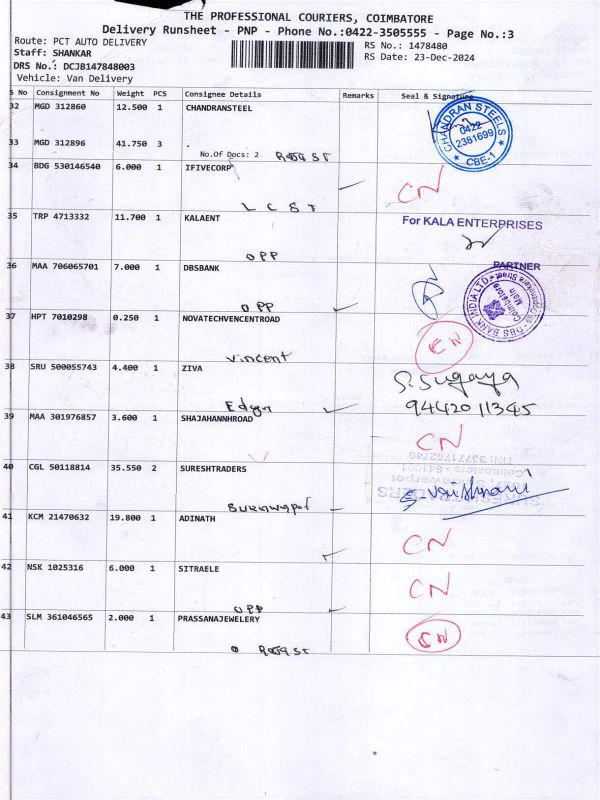 THE PROFESSIONAL COURIERS, COIMBATORE
Delivery Runsheet - PNP - Phone No.:0422-3505555 - Page No.:3
Route: PCT AUTO DELIVERY
RS No.: 1478480
Staff: SHANKAR
RS Date: 23-Dec-2024
DRS No.: DCJB147848003
Vehicle: Van Delivery
S No Consignment No Weight PCS Consignee Details Remarks Seal & Signature
32 MGD 312860 12.500 1 CHANDRANSTEEL
CHANDRAN STEELS
0422
2381699
CBE-1
33 MGD 312896 41.750 3 .
No.Of Docs: 2
34 BDG 530146540 6.000 1 IFIVECORP
CN
L C S T
35 TRP 4713332 11.700 1 KALAENT
For KALA ENTERPRISES
OPP
PARTNER
36 MAA 706065701 7.000 1 DBSBANK
DBS BANK INDIA LTD
Coimbatore
Main
OPP
37 HPT 7010298 0.250 1 NOVATECHVENCENTROAD
CN
Vincent
38 SRU 500055743 4.400 1 ZIVA
S. Sugaya
94420 11345
39 MAA 301976857 3.600 1 SHAJAHANNHROAD
CN
40 CGL 50118814 35.550 2 SURESHTRADERS
Coimbatore - 641001
41 KCM 21470632 19.800 1 ADINATH
CN
42 NSK 1025316 6.000 1 SITRAELE
CN
OPP
43 SLM 361046565 2.000 1 PRASSANAJEWELERY
CN